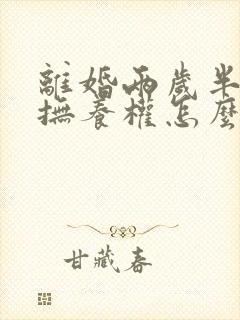 離婚兩歲半
撫養權怎麼
甘藏春